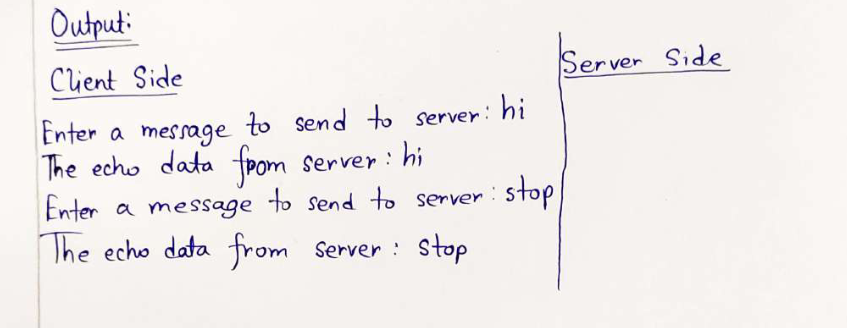 Output:
Client Side
Enter a message to send to server: hi
The echo data from server: hi
Enter a message to send to server: stop
The echo data from server: stop
Server Side